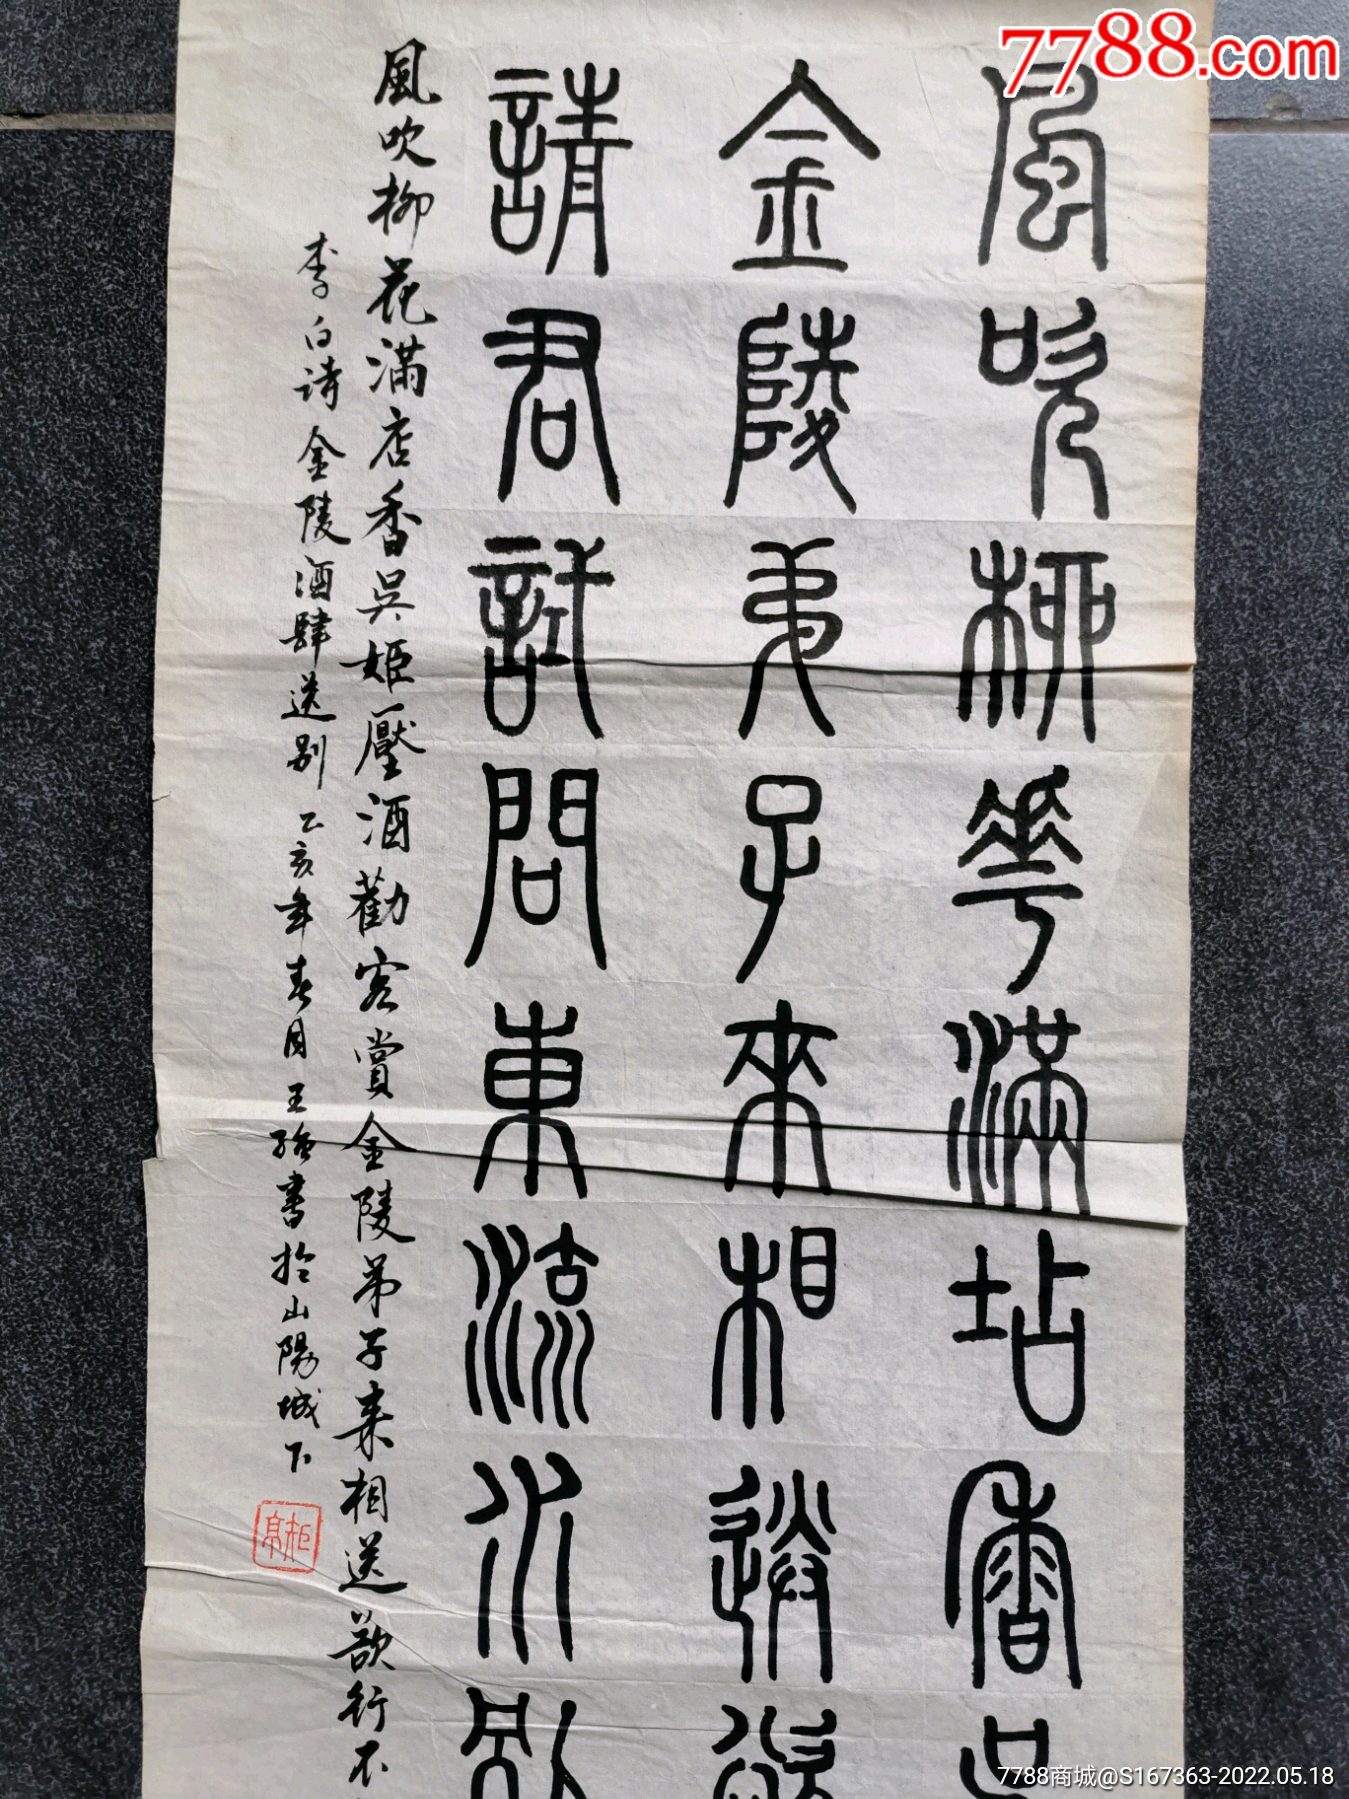 7788.com
風吹柳華滿坫香
金陵弟子來相送欲
請君試問東流水別
風吹柳花滿店香吳姬壓酒勸客賞金陵弟子來相送欲行不
李白詩金陵酒肆送別 乙亥年春月王書於山陽城下
7788商城@S167363-2022.05.18